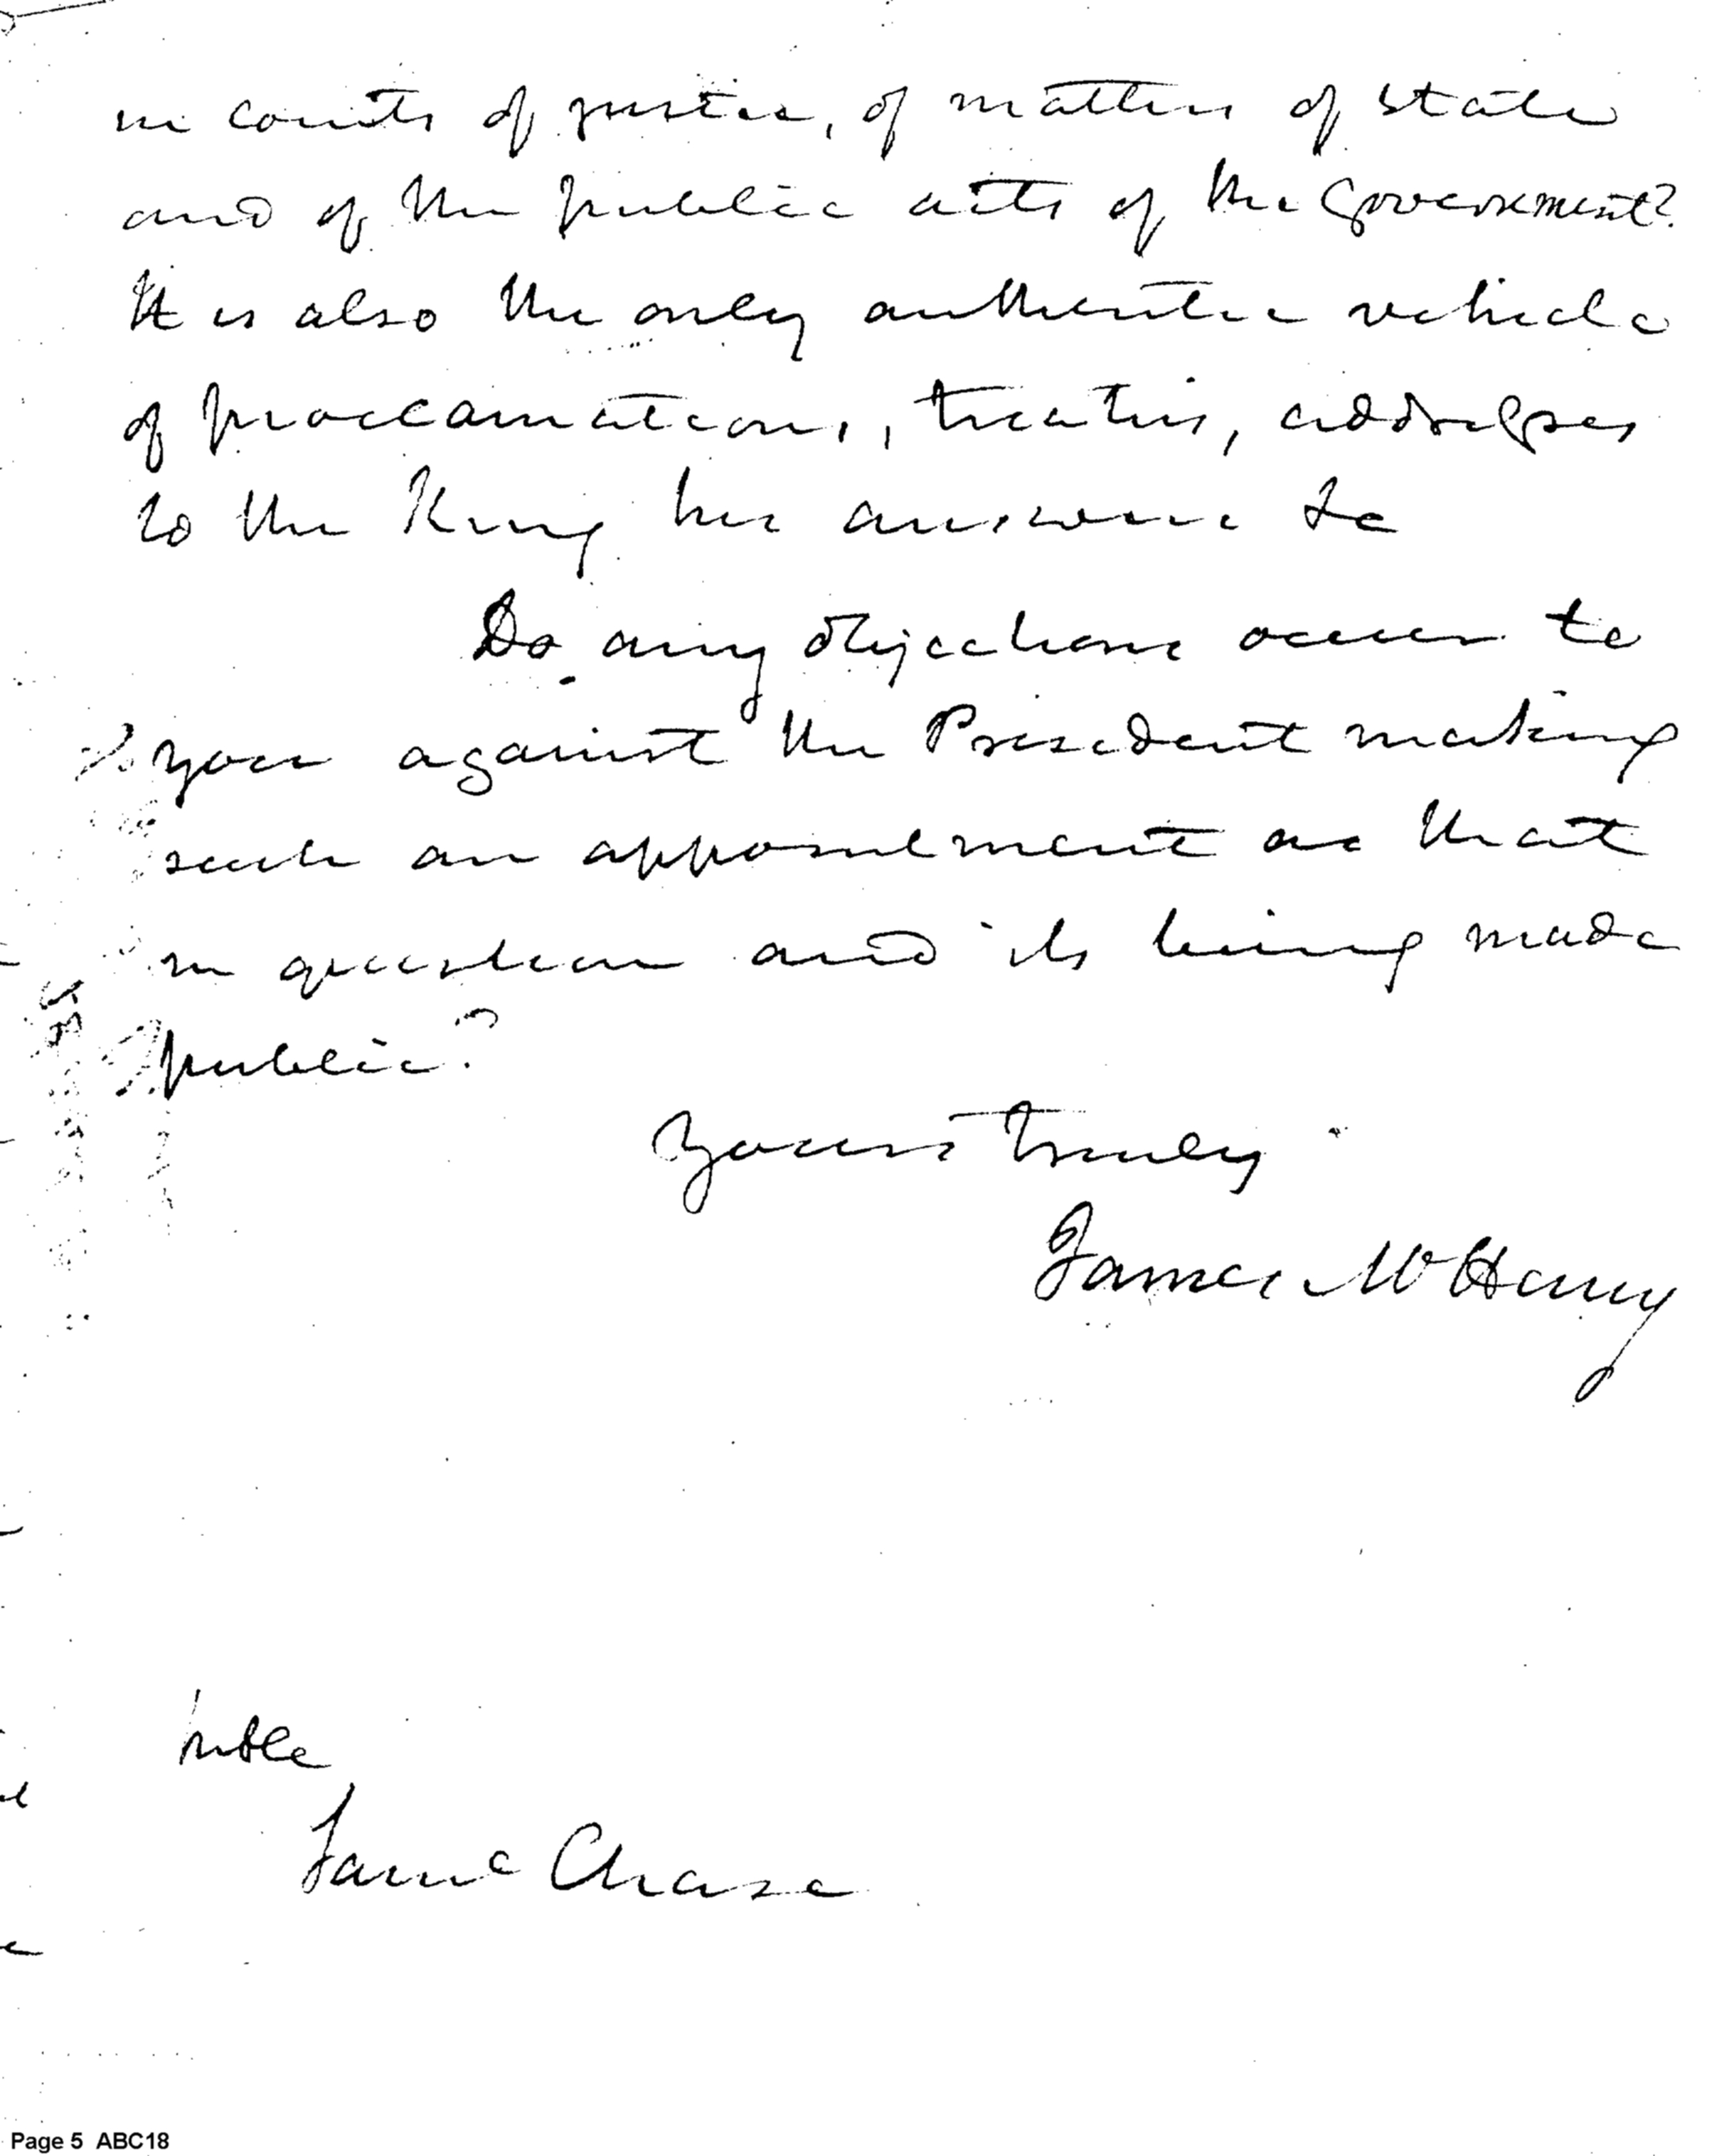 in courts of justice, of matters of state
and of the public acts of the Government?
It is also the only authentic vehicle
of proclamations, treaties, addresses
to the King his answers &c
Do any objections occur to
you against the President making
such an appointment as that
in question and its being made
public?
Yours truly
James McHenry
Chase
Page 5 ABC18